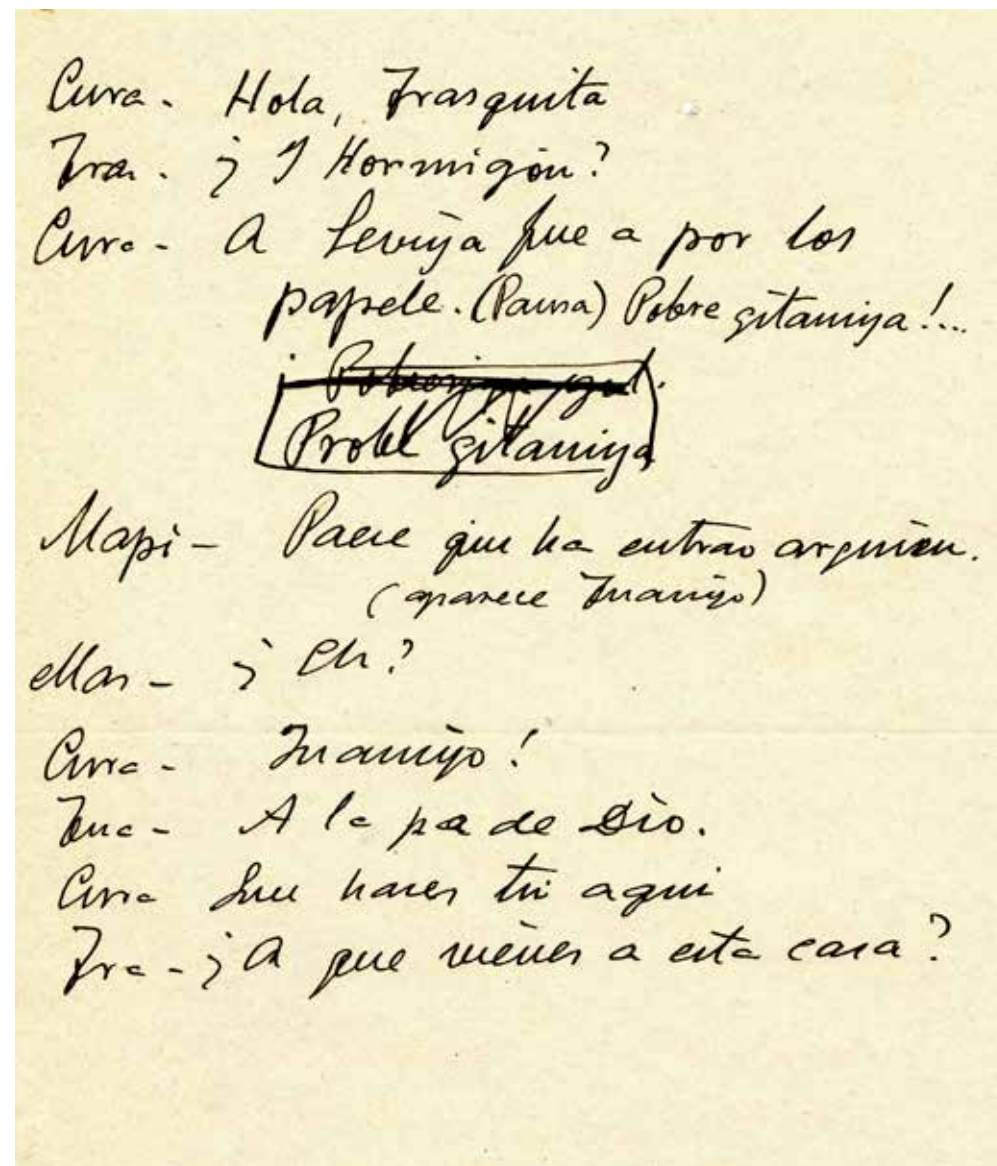 Curra - Hola, Frasquita
Fra. - ¿Y Hormigón?
Curra - A Seviya fue a por los
papele. (Pausa) Pobre gitaniya!...
Probe gitaniya
Mapi - Paece que ha entrao arguien.
(aparece Juaniyo)
Mar - ¿Eh?
Curra - Juaniyo!
Jua - A la pa de Dio.
Curra Que haces tú aqui
Fra - ¿A que vienes a esta casa?